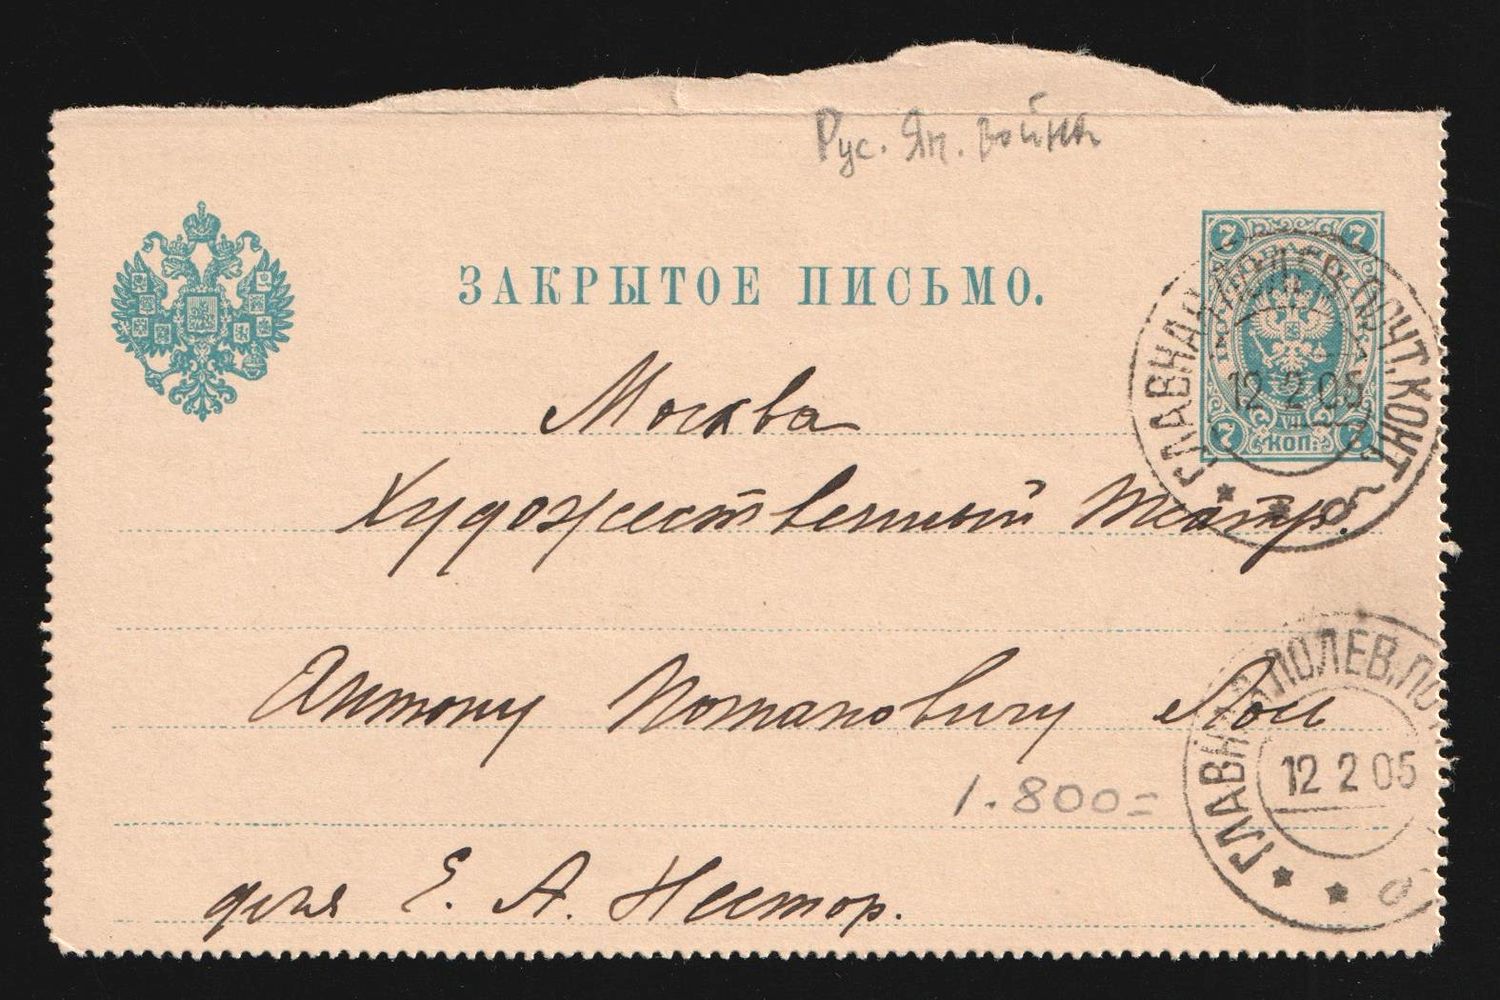 Рус. Яп. война
ЗАКРЫТОЕ ПИСЬМО.
7 7
ГЛАВНАЯ ПОЛЕВ. ПОЧТ. КОНТ.
12 2 05
VII
7 КОП. 7
Москва
Художественный Театр.
Антону Потаповичу
1.800=
ГЛАВНАЯ ПОЛЕВ. ПО
12 2 05
для Е. А. Нестор.